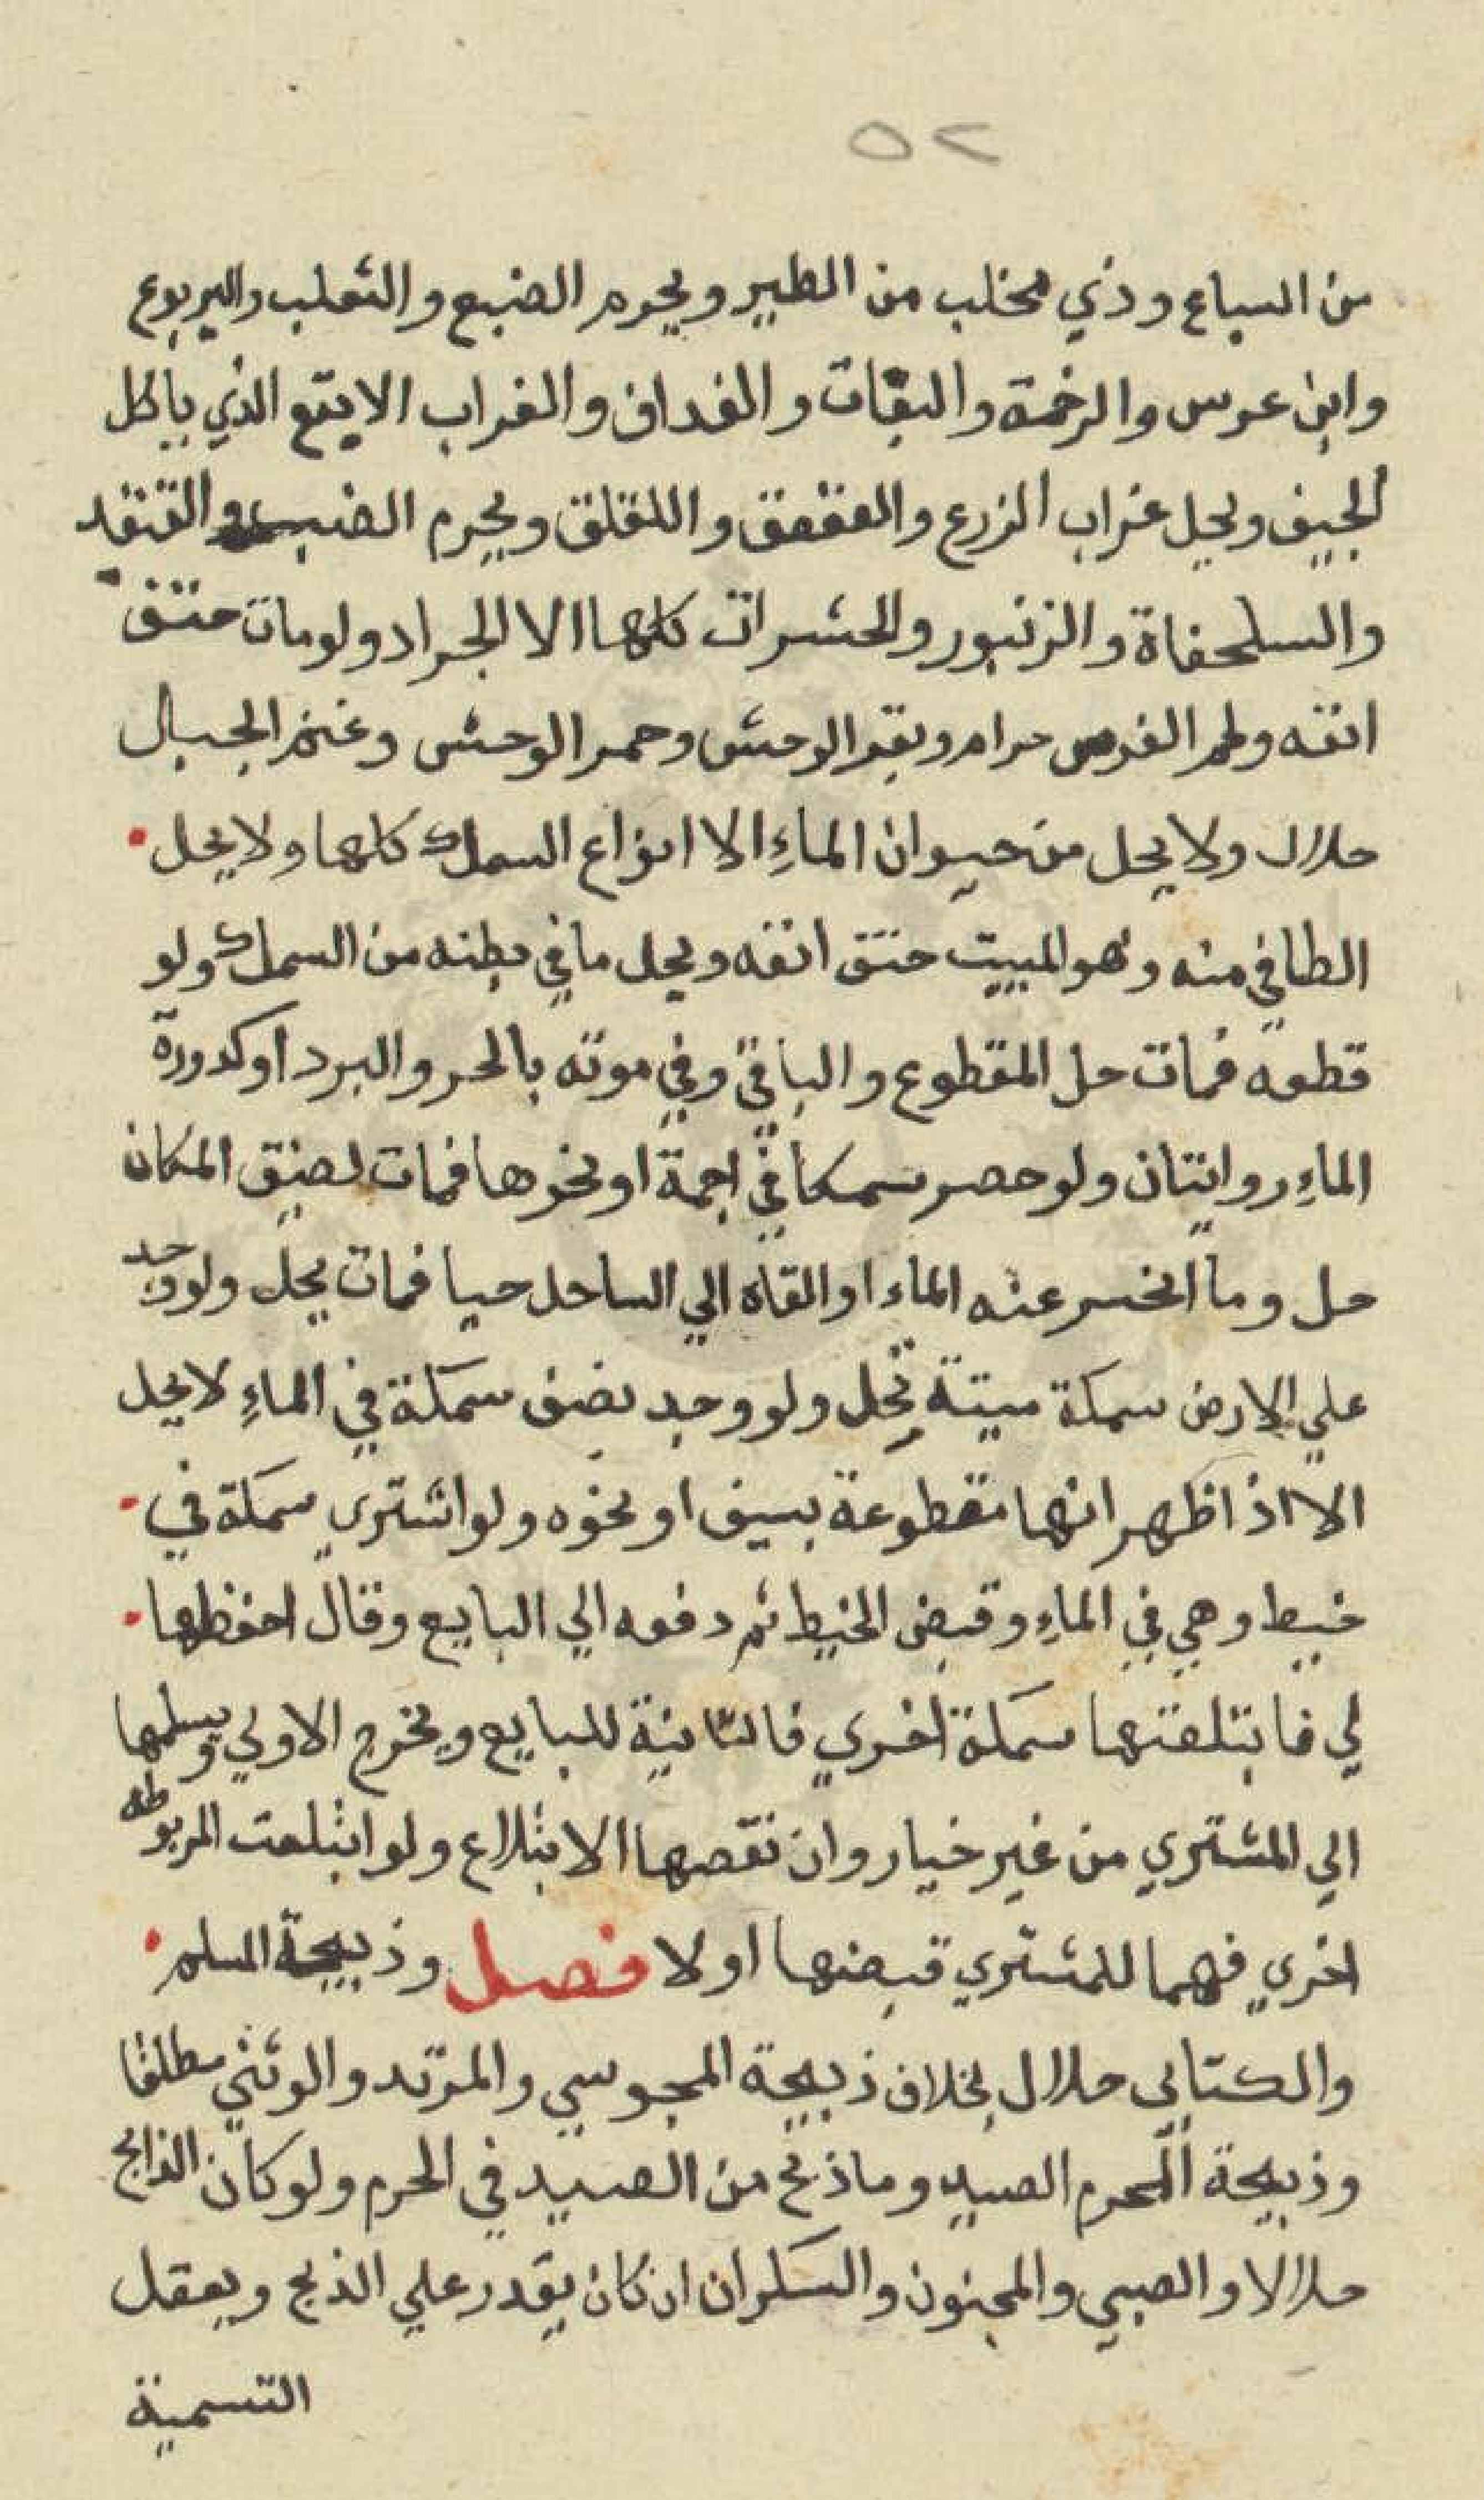 ٥٢
من السباع وذي مخلب من الطير ويحرم الضبع والثعلب واليربوع
وابن عرس والرخمة والبغاث والغداف والغراب الابقع الذي ياكل
الجيف ويحل غراب الزرع والعقعق واللقلق ويحرم الضب والقنفد
والسلحفاة والزنبور والحشرات كلها الا الجراد ولو مات حتف
انفه ولحم الفرس حرام وبقر الوحش وحمر الوحش وغنم الجبال
حلال ولا يحل من حيوان الماء الا انواع السمك كلها ولا يحل
الطافي منه وهو الميت حتف انفه ويحل ما في بطنه من السمك ولو
قطعه فمات حل المقطوع والباقي وفي موته بالحر والبرد او كدورة
الماء روايتان ولو حصر سمكا في اجمة او نحوها فمات لضيق المكان
حل وما انحسر عنه الماء او القاه الي الساحل حيا فمات يحل ولو وجد
علي الارض سمكة ميتة تحل ولو وجد نصف سمكة في الماء لا يحل
الا اذا ظهر انها مقطوعة بسيف او نحوه ولو اشتري سمكة في
خيط وهي في الماء وقبض الخيط ثم دفعه الي البايع وقال احفظها
لي فابتلعتها سمكة اخري فالثانية للبايع ويخرج الاولي ويسلمها
الي المشتري من غير خيار وان نقصها الابتلاع ولو ابتلعت المربوطه
اخري فهما للمشتري قبضها اولا فصل وذبيحة المسلم
والكتابي حلال بخلاف ذبيحة المجوسي والمرتد والوثني مطلقا
وذبيحة المحرم الصيد وما ذبح من الصيد في الحرم ولو كان الذابح
حلالا والصبي والمجنون والسكران ان كان يقدر علي الذبح ويعقل
التسمية